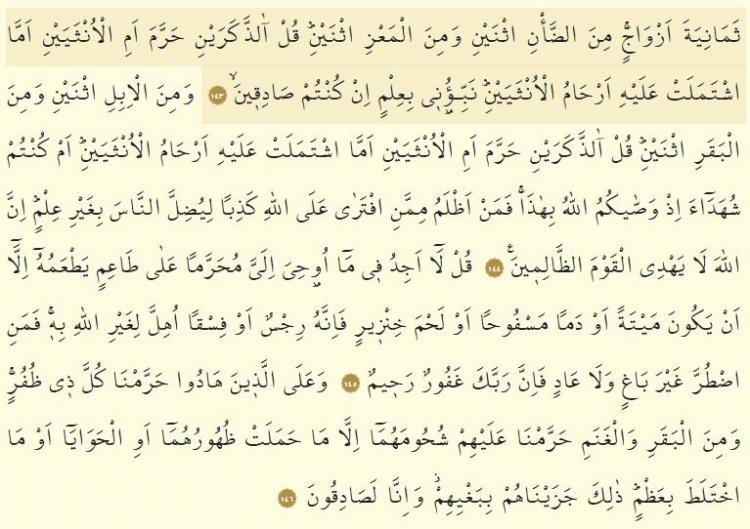 ثَمَانِيَةَ اَزْوَاجٍۚ مِنَ الضَّأْنِ اثْنَيْنِ وَمِنَ الْمَعْزِ اثْنَيْنِۜ قُلْ آٰلذَّكَرَيْنِ حَرَّمَ اَمِ الْاُنْثَيَيْنِ اَمَّا
اشْتَمَلَتْ عَلَيْهِ اَرْحَامُ الْاُنْثَيَيْنِۜ نَبِّؤُ۫ن۪ي بِعِلْمٍ اِنْ كُنْتُمْ صَادِق۪ينَۙ ﴿١٤٣﴾ وَمِنَ الْاِبِلِ اثْنَيْنِ وَمِنَ
الْبَقَرِ اثْنَيْنِۜ قُلْ آٰلذَّكَرَيْنِ حَرَّمَ اَمِ الْاُنْثَيَيْنِ اَمَّا اشْتَمَلَتْ عَلَيْهِ اَرْحَامُ الْاُنْثَيَيْنِۜ اَمْ كُنْتُمْ
شُهَدَٓاءَ اِذْ وَصّٰيكُمُ اللّٰهُ بِهٰذَاۚ فَمَنْ اَظْلَمُ مِمَّنِ افْتَرٰى عَلَى اللّٰهِ كَذِبًا لِيُضِلَّ النَّاسَ بِغَيْرِ عِلْمٍۜ اِنَّ
اللّٰهَ لَا يَهْدِي الْقَوْمَ الظَّالِم۪ينَ۟ ﴿١٤٤﴾ قُلْ لَٓا اَجِدُ ف۪ي مَٓا اُو۫حِيَ اِلَيَّ مُحَرَّمًا عَلٰى طَاعِمٍ يَطْعَمُهُٓ اِلَّٓا
اَنْ يَكُونَ مَيْتَةً اَوْ دَمًا مَسْفُوحًا اَوْ لَحْمَ خِنْز۪يرٍ فَاِنَّهُ رِجْسٌ اَوْ فِسْقًا اُهِلَّ لِغَيْرِ اللّٰهِ بِه۪ۚ فَمَنِ
اضْطُرَّ غَيْرَ بَاغٍ وَلَا عَادٍ فَاِنَّ رَبَّكَ غَفُورٌ رَح۪يمٌ ﴿١٤٥﴾ وَعَلَى الَّذ۪ينَ هَادُوا حَرَّمْنَا كُلَّ ذ۪ي ظُفُرٍۚ
وَمِنَ الْبَقَرِ وَالْغَنَمِ حَرَّمْنَا عَلَيْهِمْ شُحُومَهُمَٓا اِلَّا مَا حَمَلَتْ ظُهُورُهُمَٓا اَوِ الْحَوَايَٓا اَوْ مَا
اخْتَلَطَ بِعَظْمٍۜ ذٰلِكَ جَزَيْنَاهُمْ بِبَغْيِهِمْۘ وَاِنَّا لَصَادِقُونَ ﴿١٤٦﴾